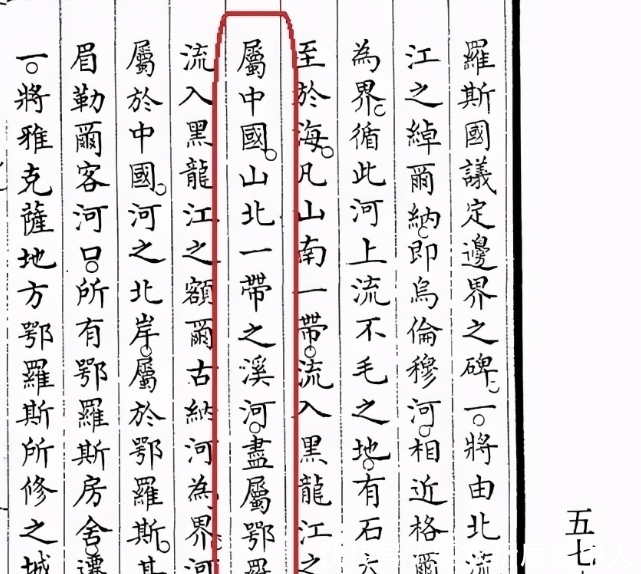 羅斯國議定邊界之碑。一。將由北流
江之綽爾納。即烏倫穆河。相近格爾
為界。循此河上流不毛之地。有石
至於海。凡山南一帶。流入黑龍江之
屬中國。山北一帶之溪河。盡屬鄂羅
流入黑龍江之額爾古納河為界。河
屬於中國。河之北岸。屬於鄂羅斯。其
眉勒爾客河口。所有鄂羅斯房舍。遷
一。將雅克薩地方鄂羅斯所修之城
五七